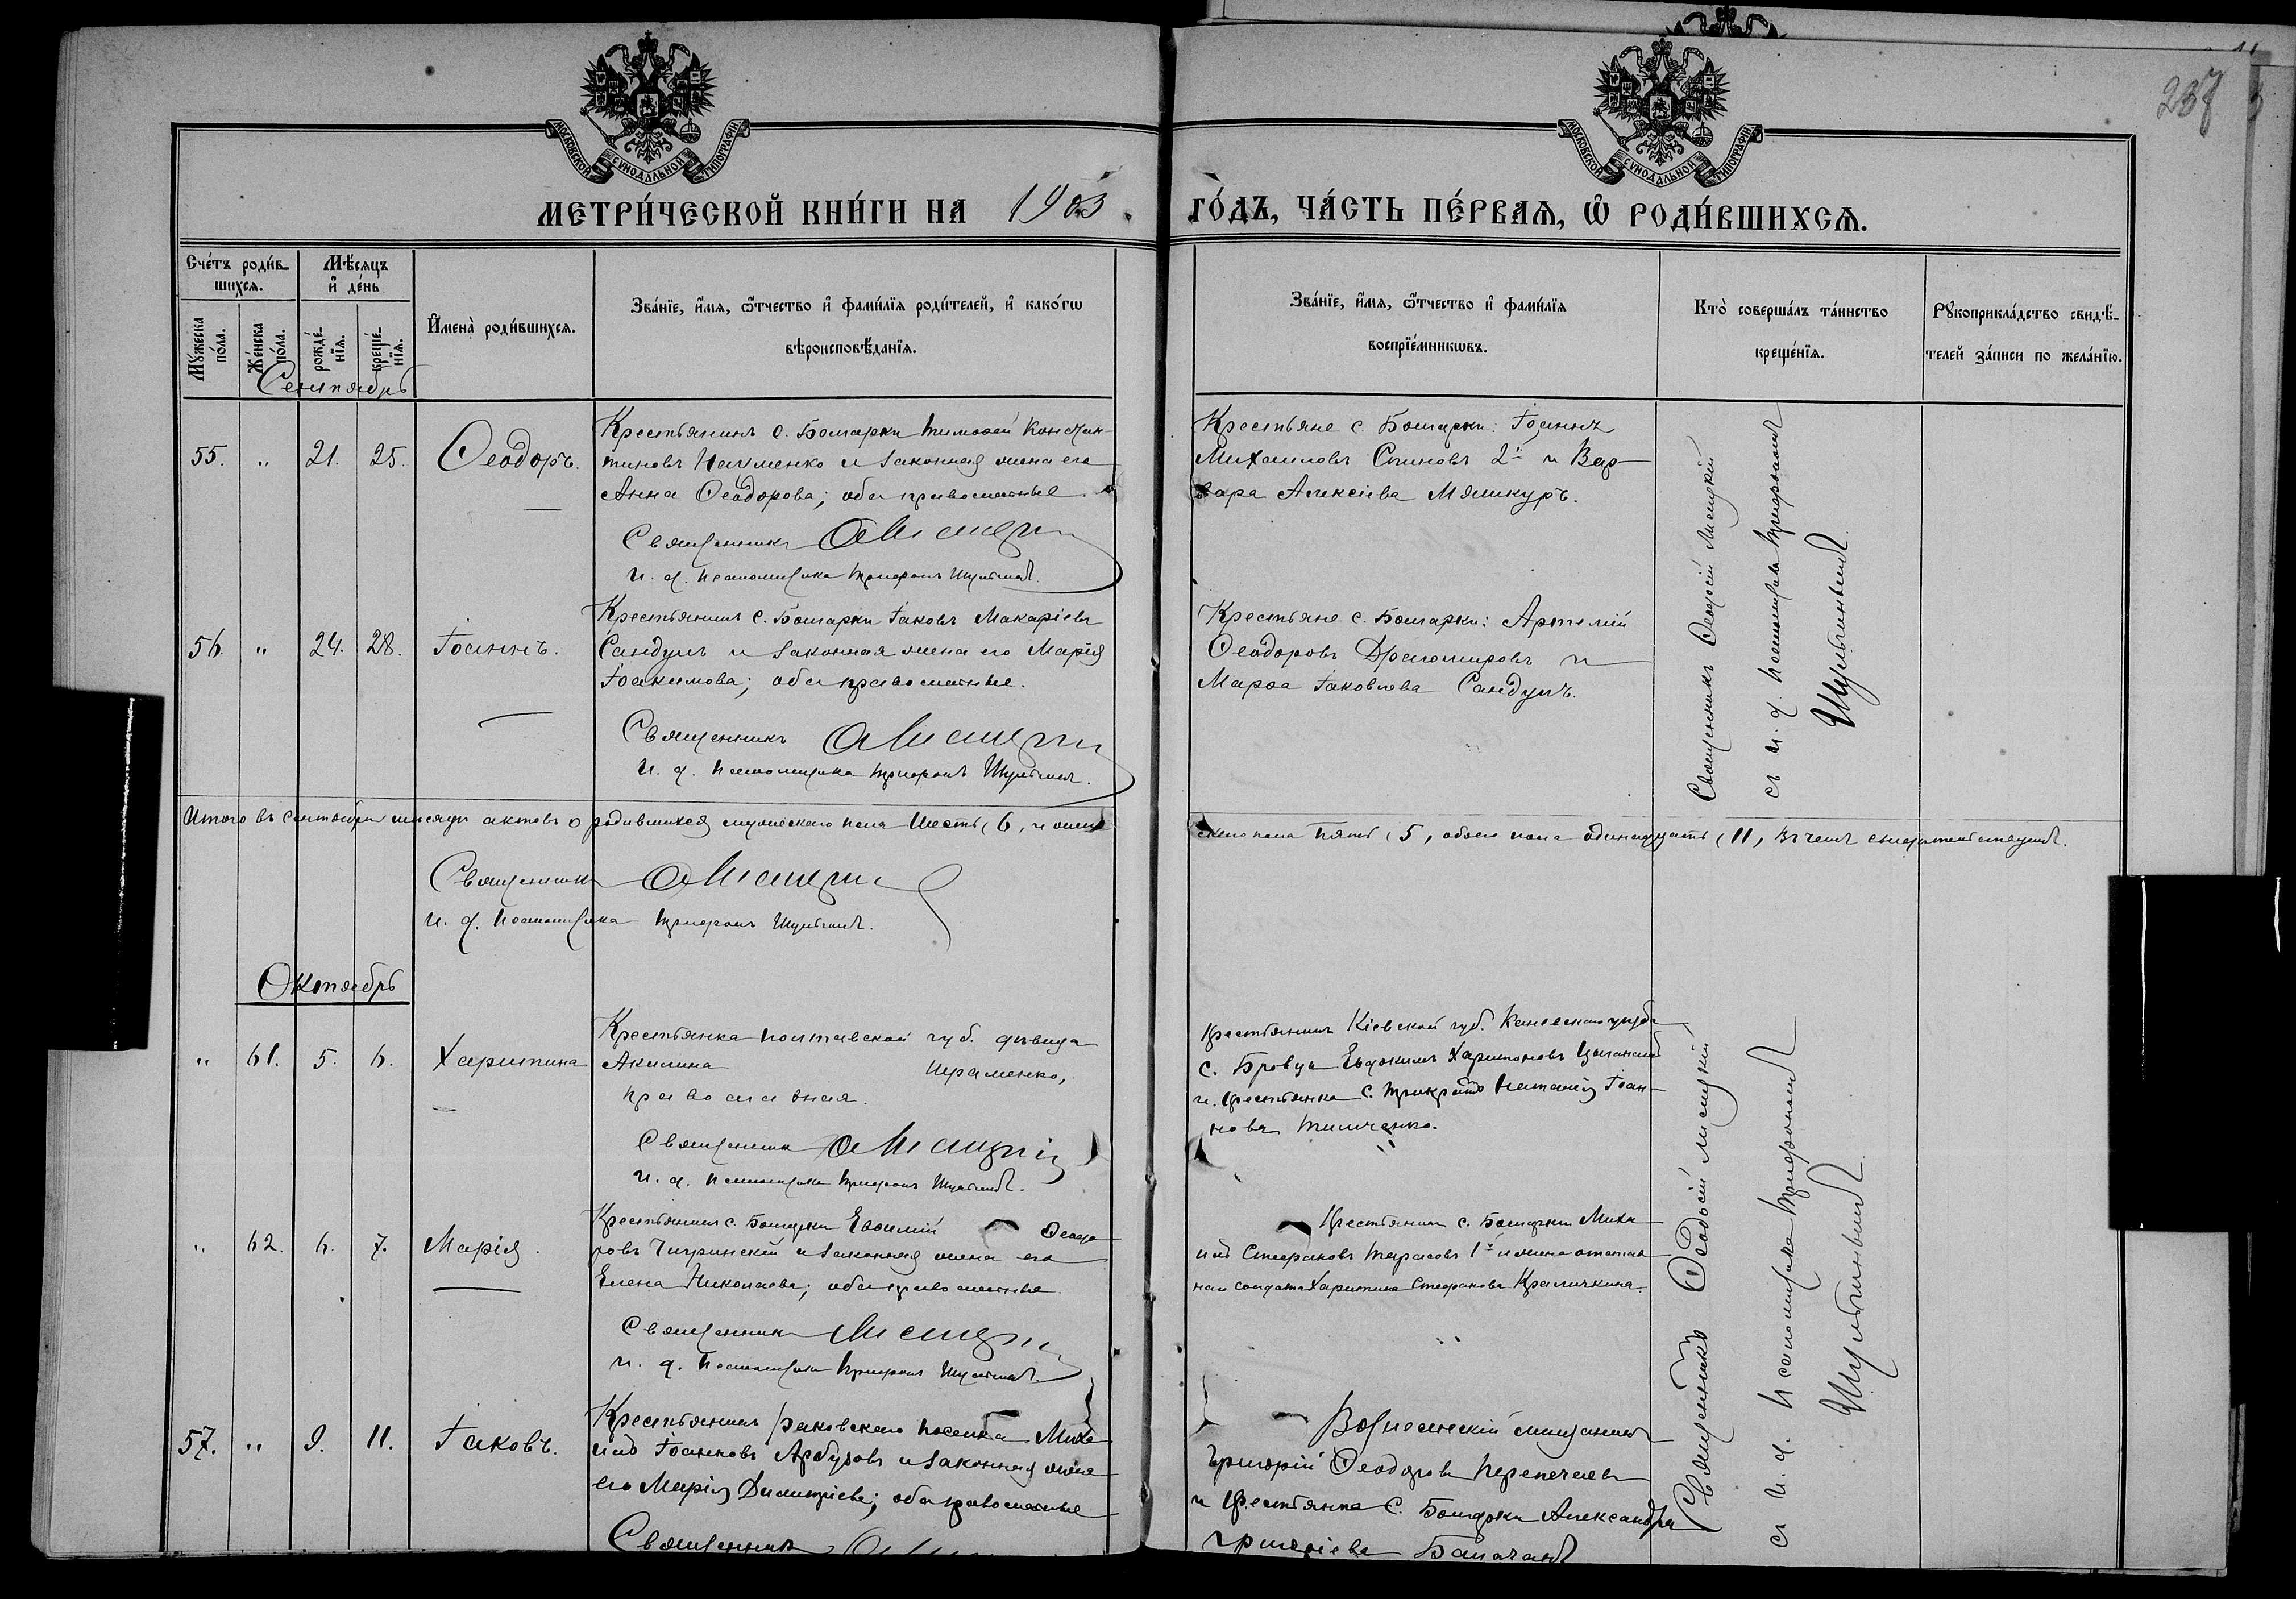 237
МОСКОВСКОЙ СУНОДАЛЬНОЙ ТИПОГРАФІИ
МОСКОВСКОЙ СУНОДАЛЬНОЙ ТИПОГРАФІИ
МЕТРИ́ЧЕСКОЙ КНИ́ГИ НА 1903. ГО́ДЪ, ЧА́СТЬ ПЕ́РВАѦ, Ѡ҆ РОДИ́ВШИХСѦ.
Сче́тъ роди́в-
шихсѧ.
Мѣ́сѧцъ
и҆ де́нь
Мꙋ́жеска по́ла.
Же́нска по́ла.
рожде́-
нїѧ.
креще́-
нїѧ.
И҆мена̀ роди́вшихсѧ.
Зва́нїе, и҆́мѧ, ѻ҆́тчество и҆ фами́лїѧ роди́телей, и҆ како́гѡ
вѣроисповѣ́данїѧ.
Зва́нїе, и҆́мѧ, ѻ҆́тчество и҆ фами́лїѧ
воспрїе́мникѡвъ.
Кто̀ соверша́лъ та́инство
креще́нїѧ.
Рꙋкоприкла́дство свидѣ́-
телей за́писи по жела́нїю.
Сентябрь
55. " 21. 25. Ѳеодоръ.
Крестьянинъ с. Болгарки Тимоѳей Констан-
тиновъ Науменко и законная жена его
Анна Ѳеодорова; оба православные.
Священникъ
И. д. псаломщика Трифонъ Шульгинъ.
Крестьяне с. Болгарки: Іоаннъ
Михаиловъ Спиновъ 2й и Вар-
вара Алексіева
Священникъ Ѳеодосій Лисицкій
съ и. д. псаломщика Трифономъ
Шульгинымъ.
56. " 24. 28. Іоаннъ.
Крестьянинъ с. Болгарки Іаковъ Макаріевъ
Сандулъ и законная жена его Марія
Іоакимова; оба православные.
Священникъ
И. д. псаломщика Трифонъ Шульгинъ.
Крестьяне с. Болгарки: Артемій
Ѳеодоровъ Драгомировъ и
Марѳа Іаковлева Сандулъ.
Итого въ сентябрѣ мѣсяцѣ актовъ о родившихся мужескаго пола шесть (6, и жен-
скаго пола пять (5, обоего пола одинадцать (11, въ чемъ свидѣтельствуемъ.
Священникъ
И. д. псаломщика Трифонъ Шульгинъ.
Октябрь
" 61. 5. 6. Харитина
Крестьянка Полтавской губ. дѣвица
Акилина Шраменко,
православная.
Священникъ
И. д. псаломщика Трифонъ Шульгинъ.
Крестьянинъ Кіевской губ. Каневскаго уѣзда
с. Евдокимъ Харитоновъ
и крестьянка с. Трикратъ Наталія Іоан-
нова Тимченко.
Священникъ Ѳеодосій Лисицкій
съ и. д. псаломщика Трифономъ
Шульгинымъ.
" 62. 6. 7. Марія.
Крестьянинъ с. Болгарки Евѳимій Ѳеодо-
ровъ Чигринскій и законная жена его
Елена Николаева; оба православные.
Священникъ
И. д. псаломщика Трифонъ Шульгинъ.
Крестьянинъ с. Болгарки Миха-
илъ Стефановъ Тарасовъ 1й и жена
солдата Харитина Стефанова
57. " 9. 11. Іаковъ.
Крестьянинъ поселка Миха-
илъ Іоанновъ Арбузовъ и законная жена
его Марія Димитріева; оба православные
Священникъ
Вознесенскій мѣщанинъ
Григорій Ѳеодоровъ
и крестьянка с. Болгарки Александра
Григоріева